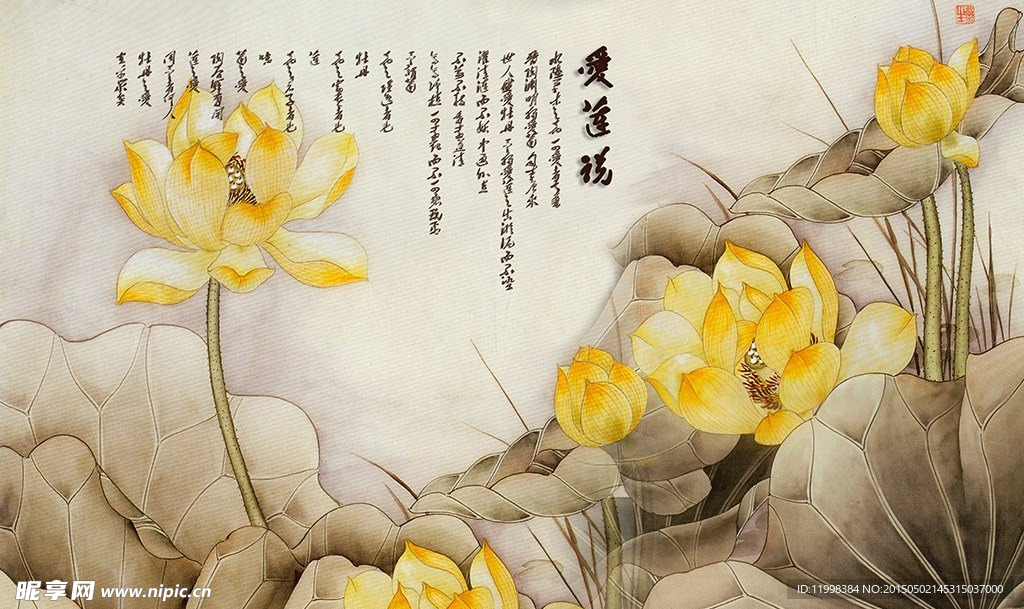 愛莲说
水陆草木之花 可爱者甚蕃
晋陶渊明独爱菊 自李唐来
世人盛爱牡丹 予独爱莲之出淤泥而不染
濯清涟而不妖 中通外直
不蔓不枝 香远益清
亭亭净植 可远观而不可亵玩焉
予谓菊
花之隐逸者也
牡丹
花之富贵者也
莲
花之君子者也
噫
菊之爱
陶后鲜有闻
莲之爱
同予者何人
牡丹之爱
宜乎众矣
昵享网 www.nipic.cn
ID:11998384 NO:20150502145315037000